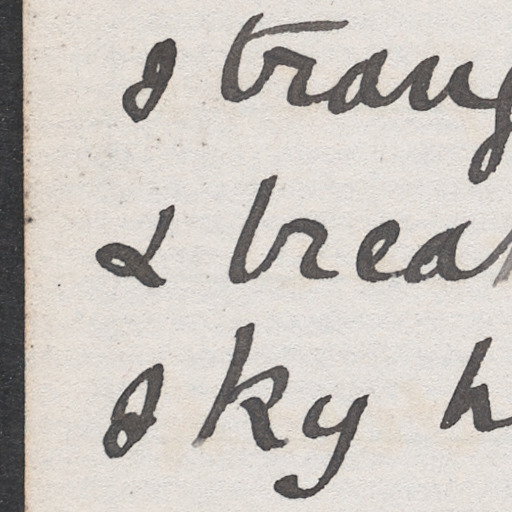 strang
& brea
sky h